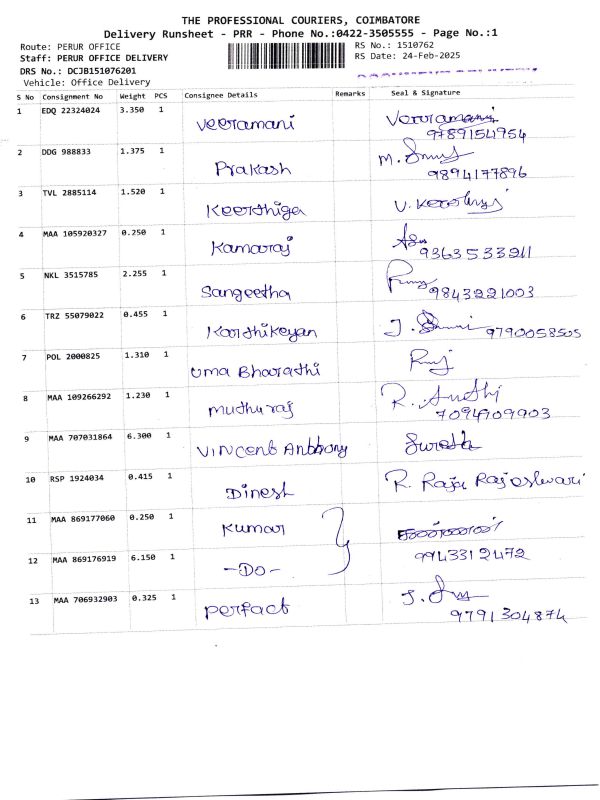 THE PROFESSIONAL COURIERS, COIMBATORE
Delivery Runsheet - PRR - Phone No.:0422-3505555 - Page No.:1
Route: PERUR OFFICE RS No.: 1510762
Staff: PERUR OFFICE DELIVERY RS Date: 24-Feb-2025
DRS No.: DCJB151076201
Vehicle: Office Delivery
S No Consignment No Weight PCS Consignee Details Remarks Seal & Signature
1 EDQ 22324024 3.350 1 Veeramani Veeramani
9789154954
2 DDG 988833 1.375 1 Prakash M.
9894177896
3 TVL 2885114 1.520 1 Keerthiga V.
4 MAA 105920327 0.250 1 Kamaraj
9363533211
5 NKL 3515785 2.255 1 Sangeetha
9843221003
6 TRZ 55079022 0.455 1 Karthikeyan J. 9790058505
7 POL 2000825 1.310 1 Uma Bharathi
8 MAA 109266292 1.230 1 Muthuraj R.
7094909903
9 MAA 707031864 6.300 1 Vincent Anthony Suresh
10 RSP 1924034 0.415 1 Dinesh R. Raja Rajeshwari
11 MAA 869177060 0.250 1 Kumar
9943312472
12 MAA 869176919 6.150 1 -Do-
13 MAA 706932903 0.325 1 Perfact J.
9791304874